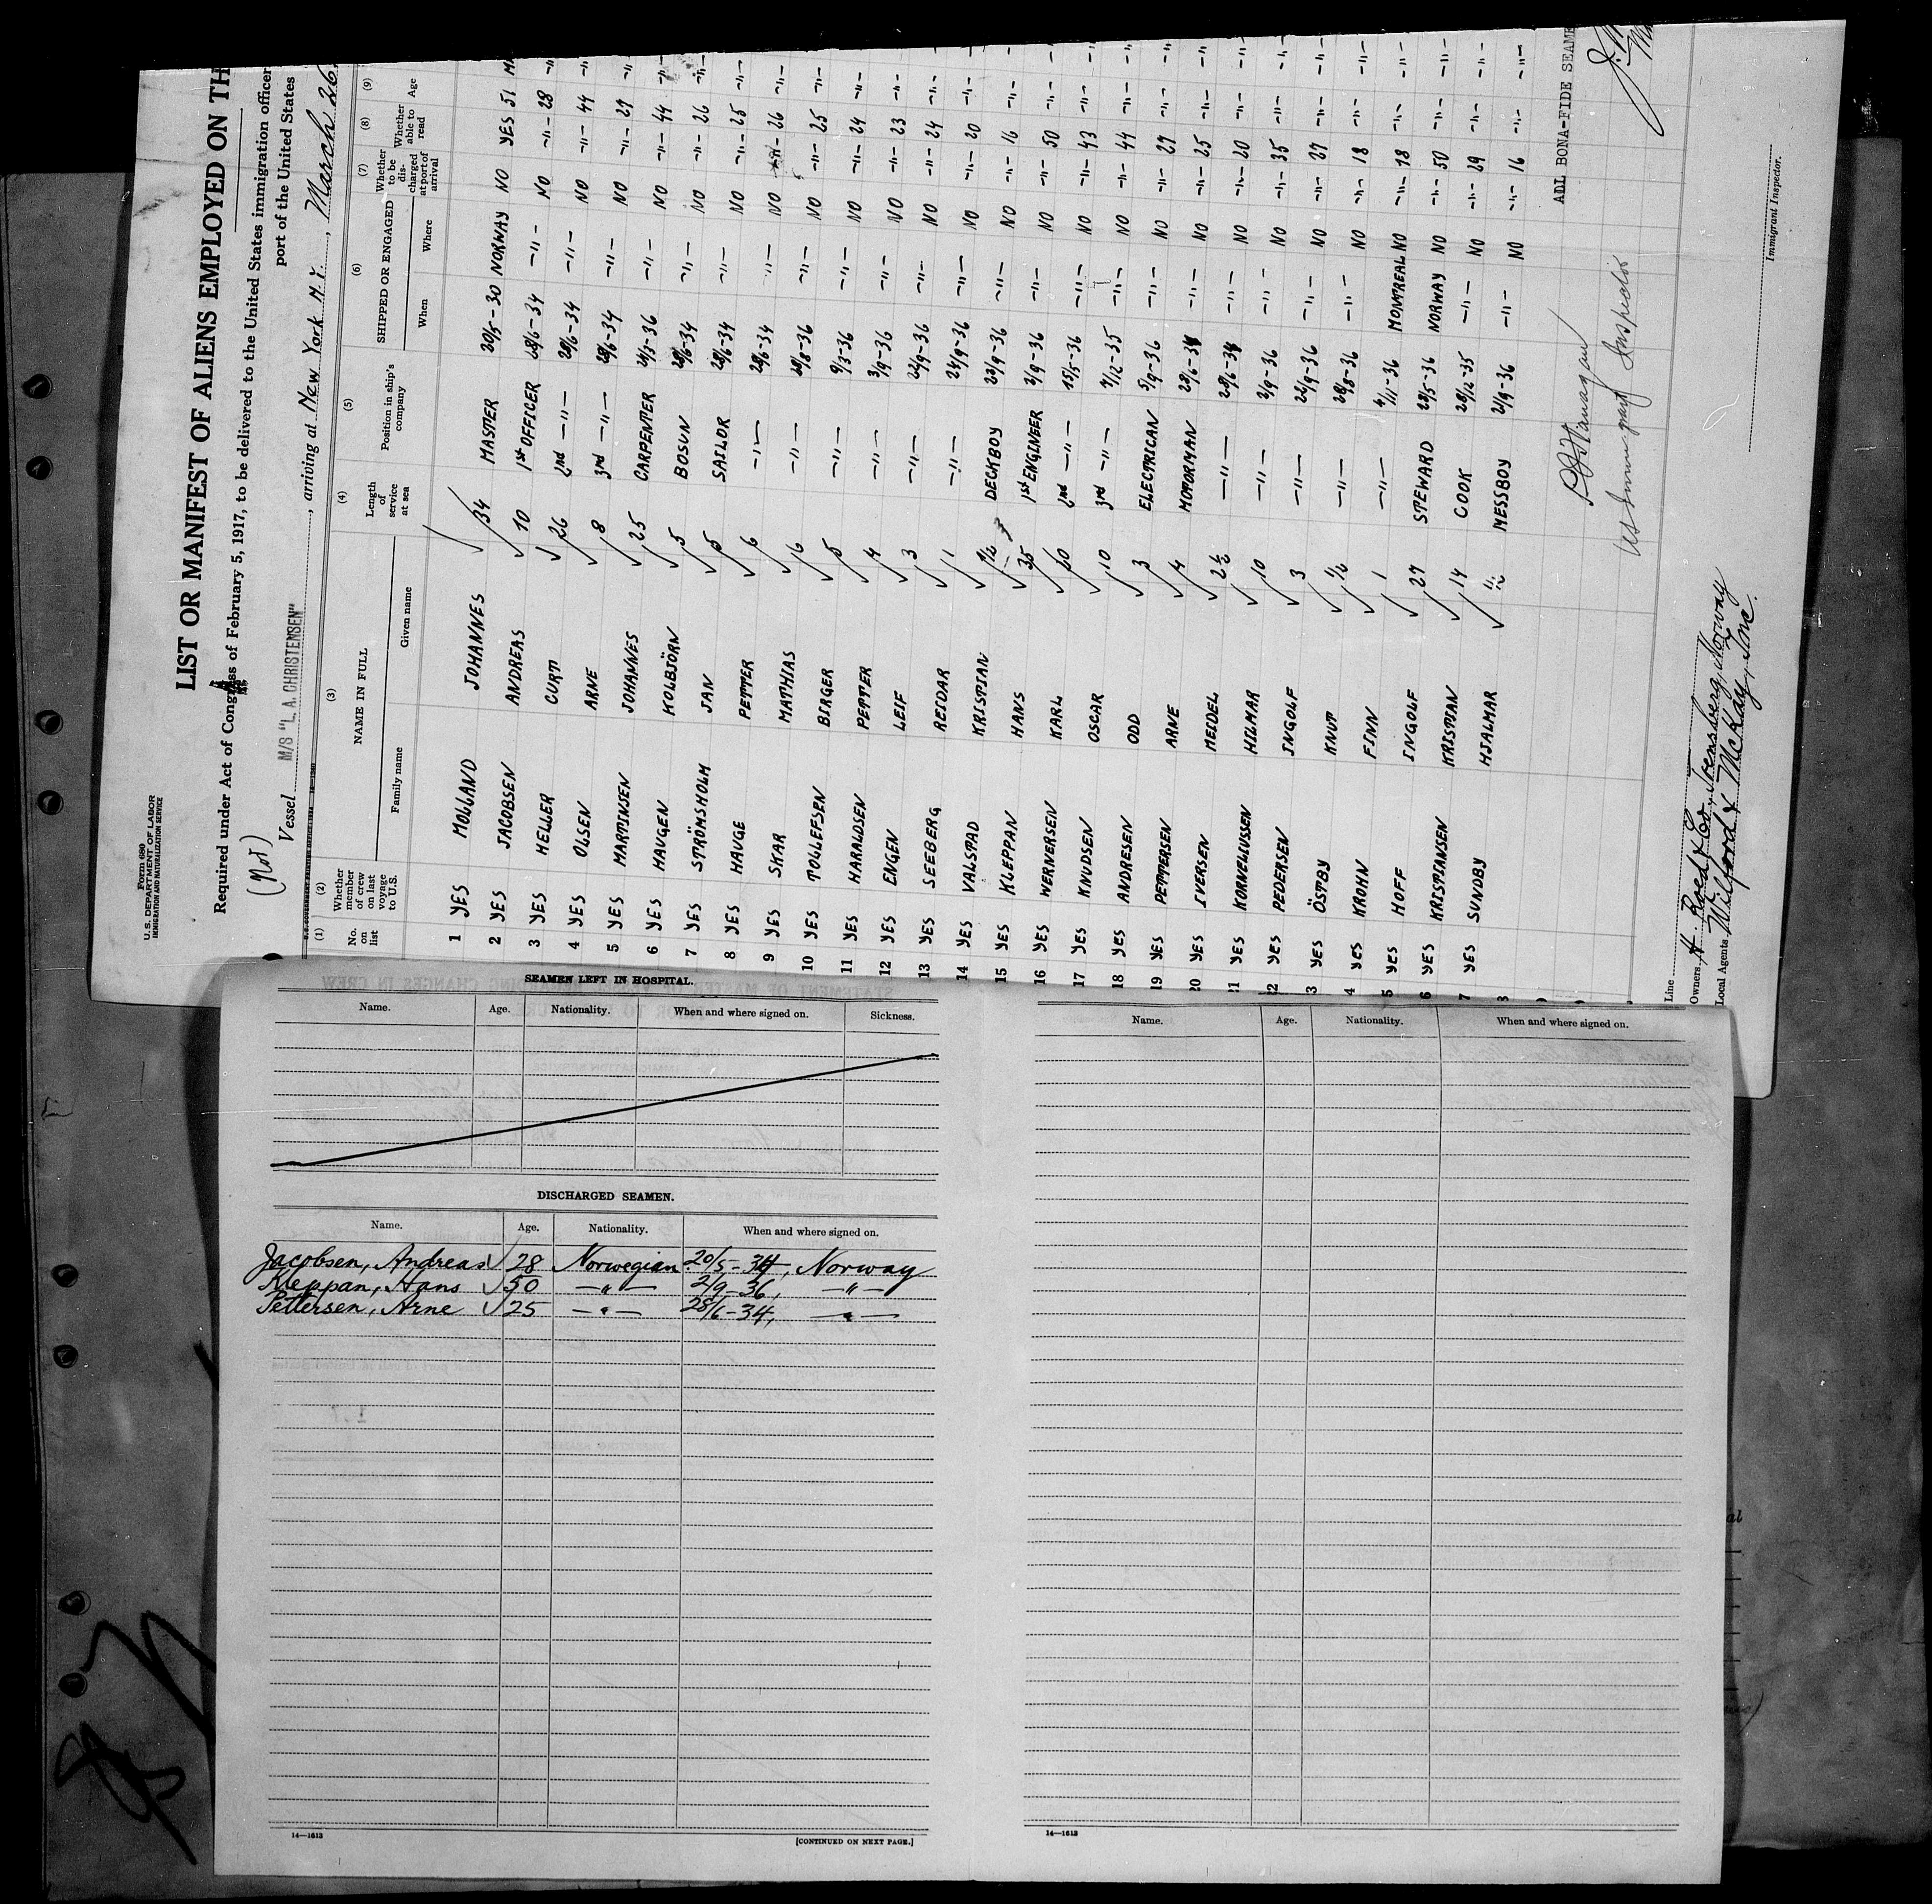 Form 680
U. S. DEPARTMENT OF LABOR
IMMIGRATION AND NATURALIZATION SERVICE
LIST OR MANIFEST OF ALIENS EMPLOYED ON TH
Required under Act of Congress of February 5, 1917, to be delivered to the United States immigration officer
port of the United States
(not)
Vessel M/S "L. A. CHRISTENSEN", arriving at New York N.Y., March 26
(1) (2) (3) (4) (5) (6) (7) (8) (9)
No. on list Whether member of crew on last voyage to U.S. NAME IN FULL Length of service at sea Position in ship's company SHIPPED OR ENGAGED Whether to be discharged at port of arrival Whether able to read Age
Family name Given name When Where
1 YES MOLLAND JOHANNES 34 MASTER 20/5-30 NORWAY NO YES 51
2 YES JACOBSEN ANDREAS 10 1st OFFICER 28/6-34 -"- NO -"- 28 -"-
3 YES HELLER CURT 26 2nd -"- 28/6-34 -"- NO -"- 44 -"-
4 YES OLSEN ARNE 8 3rd -"- 28/6-34 -"- NO -"- 27 -"-
5 YES MARTINSEN JOHANNES 25 CARPENTER 24/3-36 -"- NO -"- 44 -"-
6 YES HAUGEN KOLBJÖRN 5 BOSUN 28/6-34 -"- NO -"- 26 -"-
7 YES STRÖMSHOLM JAN 5 SAILOR 28/6-34 -"- NO -"- 25 -"-
8 YES HAUGE PETTER 6 -"- 28/6-34 -"- NO -"- 26 -"-
9 YES SKAR MATHIAS 6 -"- 28/8-36 -"- NO -"- 25 -"-
10 YES TOLLEFSEN BIRGER 5 -"- 9/3-36 -"- NO -"- 24 -"-
11 YES HARALDSEN PETTER 4 -"- 3/9-36 -"- NO -"- 23 -"-
12 YES ENGEN LEIF 3 -"- 22/9-36 -"- NO -"- 24 -"-
13 YES SEEBERG REIDAR 1 -"- 24/9-36 -"- NO -"- 20 -"-
14 YES VALSTAD KRISTIAN 1/2 DECKBOY 23/9-36 -"- NO -"- 16 -"-
15 YES KLEPPAN HANS 35 1st ENGINEER 2/9-36 -"- NO -"- 50 -"-
16 YES WERNERSEN KARL 20 2nd -"- 15/5-36 -"- NO -"- 43 -"-
17 YES KNUDSEN OSCAR 10 3rd -"- 7/12-35 -"- NO -"- 44 -"-
18 YES ANDRESEN ODD 3 ELECTRICAN 5/9-36 -"- NO -"- 27 -"-
19 YES PETTERSEN ARNE 4 MOTORMAN 28/6-34 -"- NO -"- 25 -"-
20 YES IVERSEN MEIDEL 2 1/2 -"- 28/6-34 -"- NO -"- 20 -"-
21 YES KORNELIUSSEN HILMAR 10 -"- 2/9-36 -"- NO -"- 35 -"-
22 YES PEDERSEN INGOLF 3 -"- 22/9-36 -"- NO -"- 27 -"-
3 YES ÖSTBY KNUT 1 1/2 -"- 28/8-36 -"- NO -"- 18 -"-
4 YES KROHN FINN 1 -"- 4/11-36 MONTREAL NO -"- 18 -"-
5 YES HOFF INGOLF 27 STEWARD 28/5-36 NORWAY NO -"- 50 -"-
6 YES KRISTIANSEN KRISTIAN 14 COOK 28/12-35 -"- NO -"- 29 -"-
7 YES SUNDBY HJALMAR 1 1/2 MESSBOY 21/9-36 -"- NO -"- 16 -"-
8
ADL BONA-FIDE SEAME
US Immigrant Inspector
Line
Owners H. Roed & Co, Toensberg, Norway
Local Agents Wilford & McKay, Inc.
Immigrant Inspector.
SEAMEN LEFT IN HOSPITAL.
Name. Age. Nationality. When and where signed on. Sickness.
DISCHARGED SEAMEN.
Name. Age. Nationality. When and where signed on.
Jacobsen, Andreas 28 Norwegian 20/5-34, Norway
Kleppan, Hans 50 -"- 2/9-36, -"-
Pettersen, Arne 25 -"- 28/6-34, -"-
14—1613
[CONTINUED ON NEXT PAGE.]
Name. Age. Nationality. When and where signed on.
14—1613